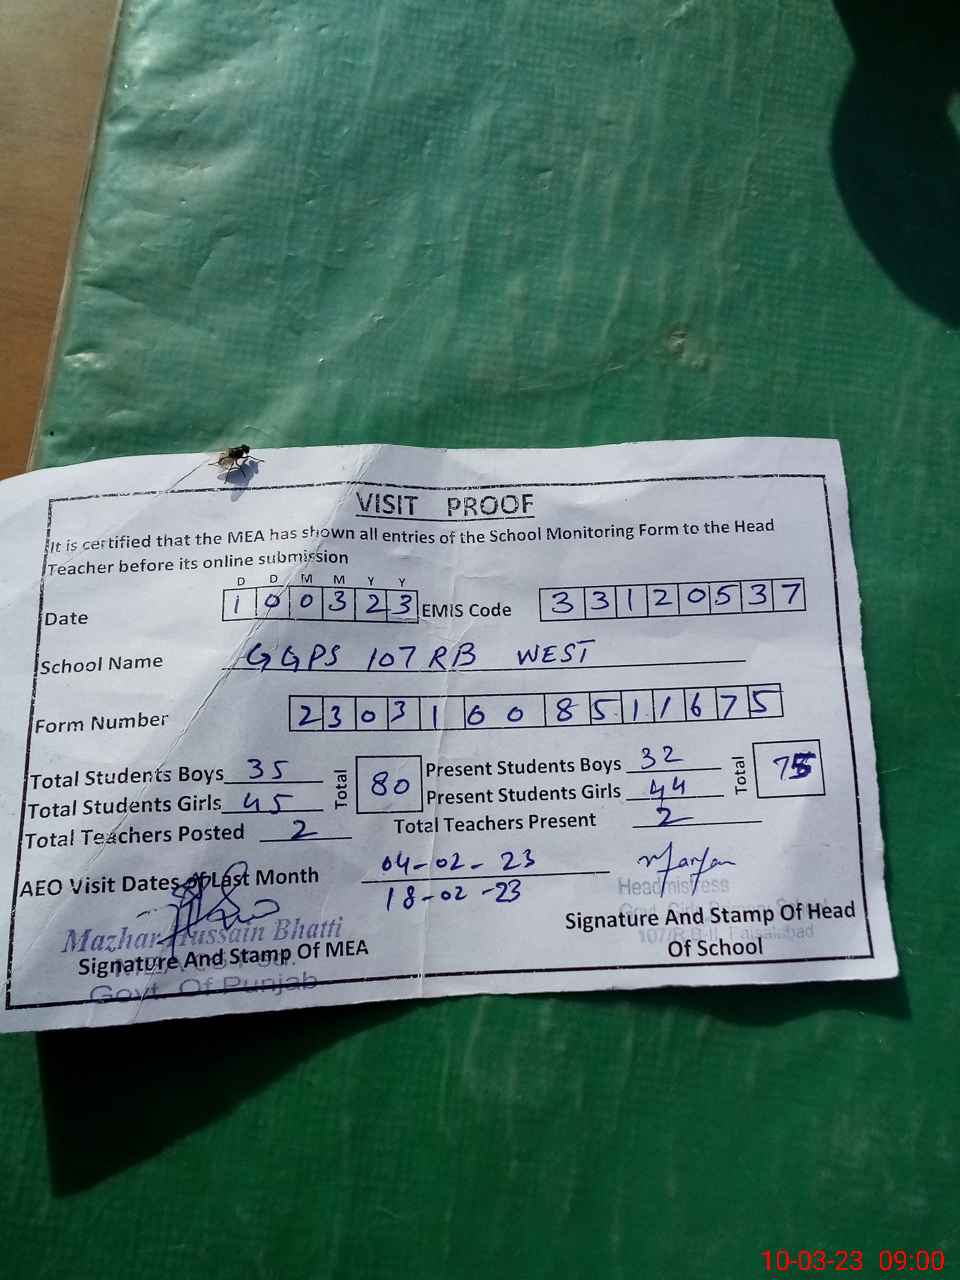 VISIT PROOF
It is certified that the MEA has shown all entries of the School Monitoring Form to the Head
Teacher before its online submission
D D M M Y Y
Date 1 0 0 3 2 3 EMIS Code 3 3 1 2 0 5 3 7
School Name GGPS 107 RB WEST
Form Number 2 3 0 3 1 0 0 8 5 1 1 6 7 5
Total Students Boys 35 Total 80 Present Students Boys 32 Total
Total Students Girls 45 Present Students Girls 44
Total Teachers Posted 2 Total Teachers Present 2
AEO Visit Dates of Last Month 04-02-23
18-02-23
Headmistress
Mazhar Hussain Bhatti
Signature And Stamp Of MEA
Govt. Of Punjab
Signature And Stamp Of Head
Of School
107/R.B-II, Faisalabad
10-03-23 09:00